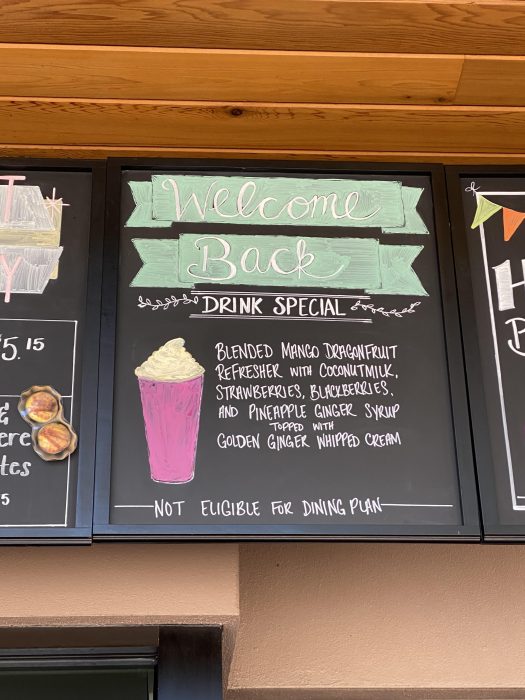 T
Y
5.15
&
ere
tes
5
Welcome
Back
DRINK SPECIAL
BLENDED MANGO DRAGONFRUIT
REFRESHER WITH COCONUTMILK,
STRAWBERRIES, BLACKBERRIES,
AND PINEAPPLE GINGER SYRUP
TOPPED WITH
GOLDEN GINGER WHIPPED CREAM
NOT ELIGIBLE FOR DINING PLAN
H
B